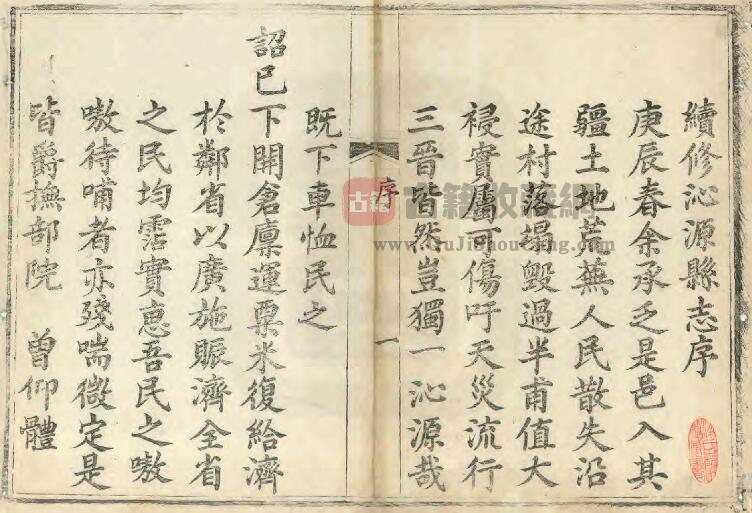 續修沁源縣志序
庚辰春余承乏是邑入其
疆土地荒蕪人民散失沿
途村落塌毀過半甫值大
祲實屬可傷吁天災流行
三晉皆然豈獨一沁源哉
序
一
既下車恤民之
詔已下開倉廩運粟米復給濟
於鄰省以廣施賑濟全省
之民均霑實惠吾民之嗷
嗷待哺者亦殘喘微定是
皆爵撫部院 曾仰體
古籍
古籍收藏網
www.GuJiShouCang.com